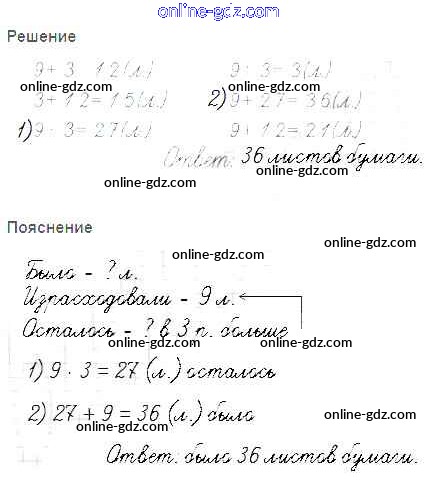 online-gdz.com
Решение
9 + 3 = 12 (л.) 9 : 3 = 3 (л.)
online-gdz.com online-gdz.com
3 + 12 = 15 (л.) 2) 9 + 27 = 36 (л.)
1) 9 · 3 = 27 (л.) 9 + 12 = 21 (л.)
online-gdz.com
Ответ: 36 листов бумаги.
online-gdz.com
Пояснение
online-gdz.com
online-gdz.com
Было - ? л.
Израсходовали - 9 л.
online-gdz.com
Осталось - ? в 3 р. больше
online-gdz.com
1) 9 · 3 = 27 (л.) осталось
online-gdz.com
2) 27 + 9 = 36 (л.) было
online-gdz.com
Ответ: было 36 листов бумаги.
online-gdz.com